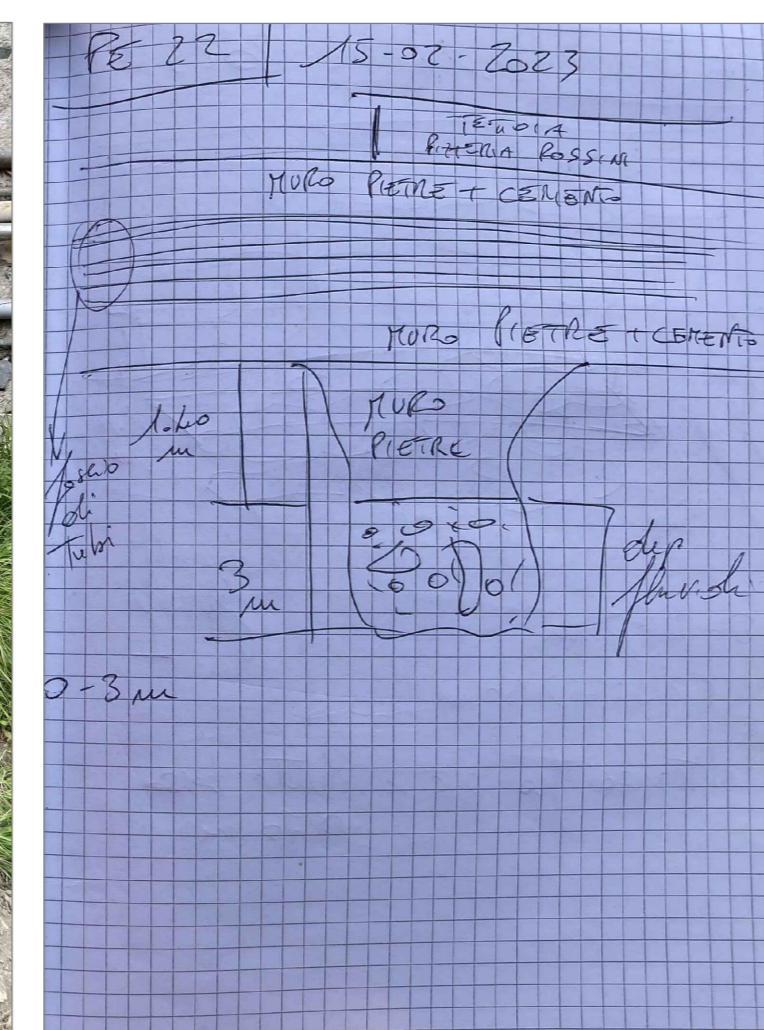 PE 22 15-02-2023
TETTOIA
PIZZERIA ROSSINI
MURO PIETRE + CEMENTO
MURO PIETRE + CEMENTO
MURO
PIETRE
1.40
m
fascio
di
tubi
3
m
dep
fluviali
0-3 m